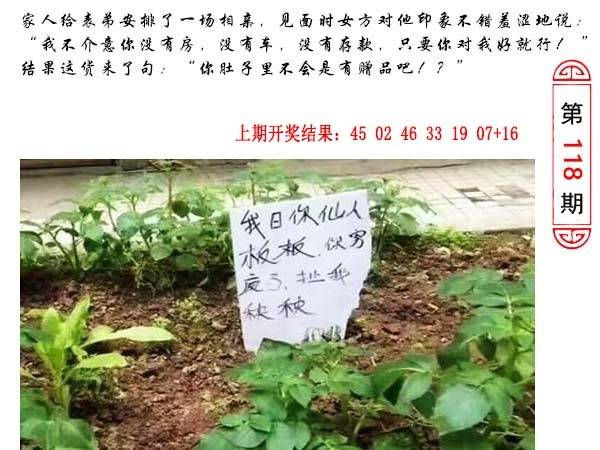 家人给表弟安排了一场相亲，见面时女方对他印象不错羞涩地说：
“我不介意你没有房，没有车，没有存款，只要你对我好就行！”
结果这货来了句：“你肚子里不会是有赠品吧！？”
上期开奖结果：45 02 46 33 19 07+16
第118期
我日你仙人
板板.你穷
疯了、扯我
秧秧